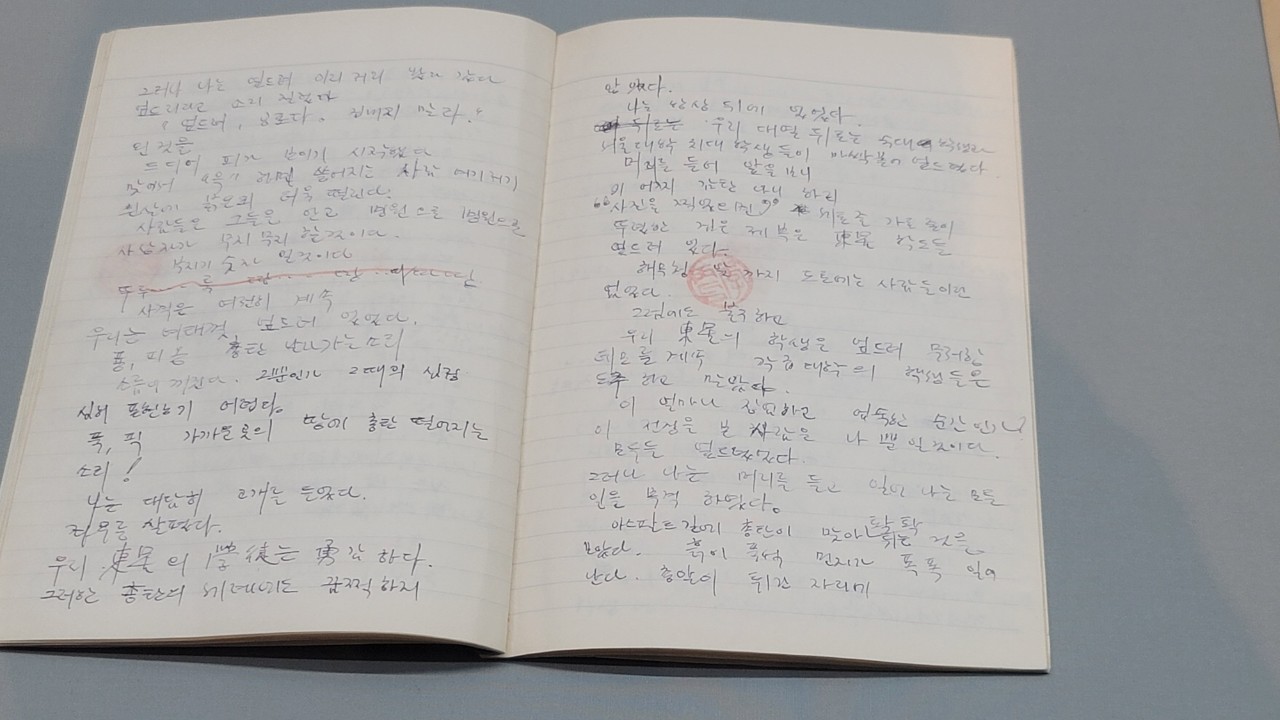 그러나 나는 엎드려 이리저리
엎드리라고 소리 질렀다
"엎드려, 말라."
된 것을
드디어 피가 보이기 시작했다
맞아서 "윽" 쓰러지는 사람 여기저기
붉은피 더욱 떨린다.
사람들은 그들을 안고 병원으로 병원으로
사상자가 무지무지 할것이다.
부지기 숫자 일것이다
사격은 여전히 계속
우리는 여태껏, 엎드려 있었다.
퓽, 피융 총탄 나라가는소리
소름이 끼친다. 그뿐인가 그때의 심경
어렵다.
폭, 픽 가까운곳의 땅에 총탄 떨어지는
소리!
나는 대답히 고개를 들었다.
좌우를 살폈다.
우리 東星의 學徒는 勇감하다.
그러한 총탄의 세례에도 끔찍하지
않았다.
나는 뒤에 있었다.
뒤로는 우리 대열 뒤로는
서울대학 의대 학생들이 바싹붙어 엎드렸다
머리를 들어 앞을 보니
이 어찌 하리
"사진을 찍었으면" 세로줄 가로줄이
뚜렷한 검은 제복은 東星 학도들
엎드려 있다.
해무청 까지 도로에는 사람들이란
없었다.
그럼에도 불구하고
우리 東星의 학생은 엎드려 무려한
데모를 계속 각종대학의 학생들은
도주하고 말았다.
이 얼마나 장엄하고 엄숙한 순간인가!
이 선성을 본 사람은 나 뿐일것이다.
모두들 엎드렸었다.
그러나 나는 머리를 들고 일어나는 모든
일을 목격 하였다.
아스팔트길에 총탄이 맞아 팍팍 튀는 것을
보았다. 흙이 풀석 먼지가 폭폭 일어
난다. 총알이 튀긴 자리에